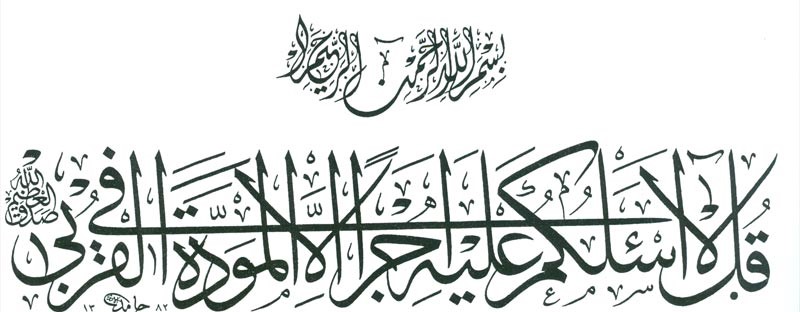 بِسْمِ اللَّهِ الرَّحْمٰنِ الرَّحِيمِ
قُل لَّا أَسْئَلُكُمْ عَلَيْهِ أَجْرًا إِلَّا الْمَوَدَّةَ فِي الْقُرْبَى
صدق الله العظيم
حامد ١٣٨٢